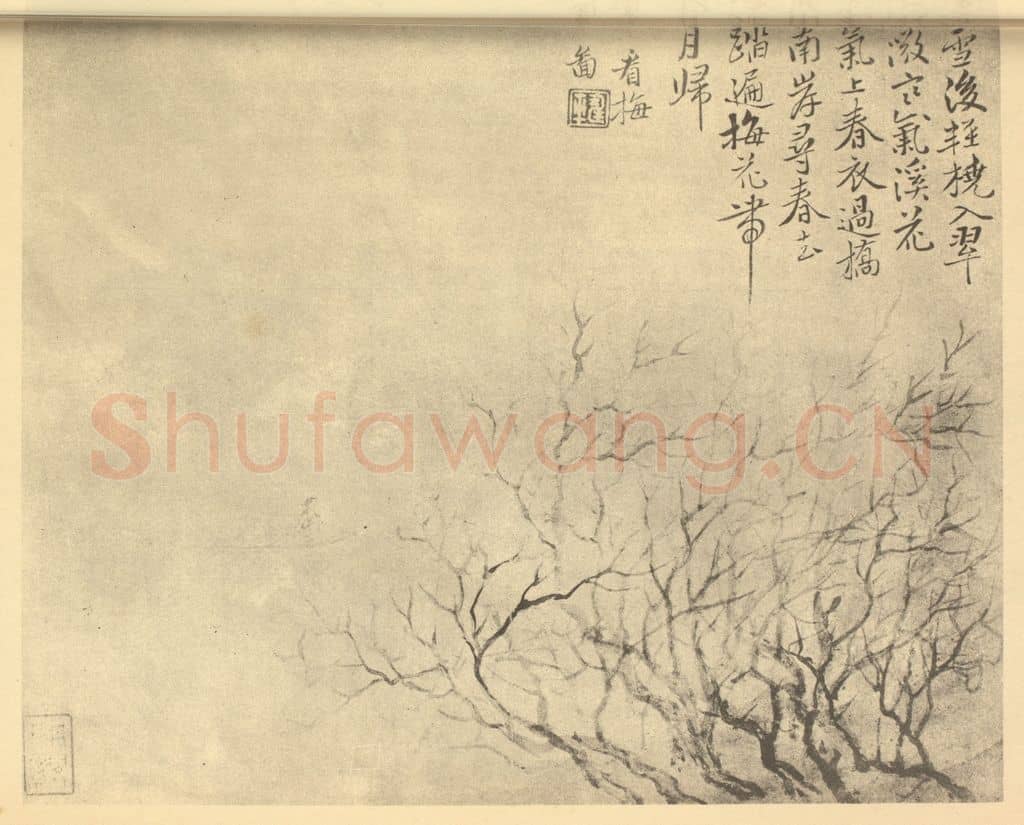 雪後輕橈入翠
微寒氣溪花
氣上春衣過橋
南岸尋春去
踏遍梅花帶
月歸
看梅
圖
Shufawang.CN